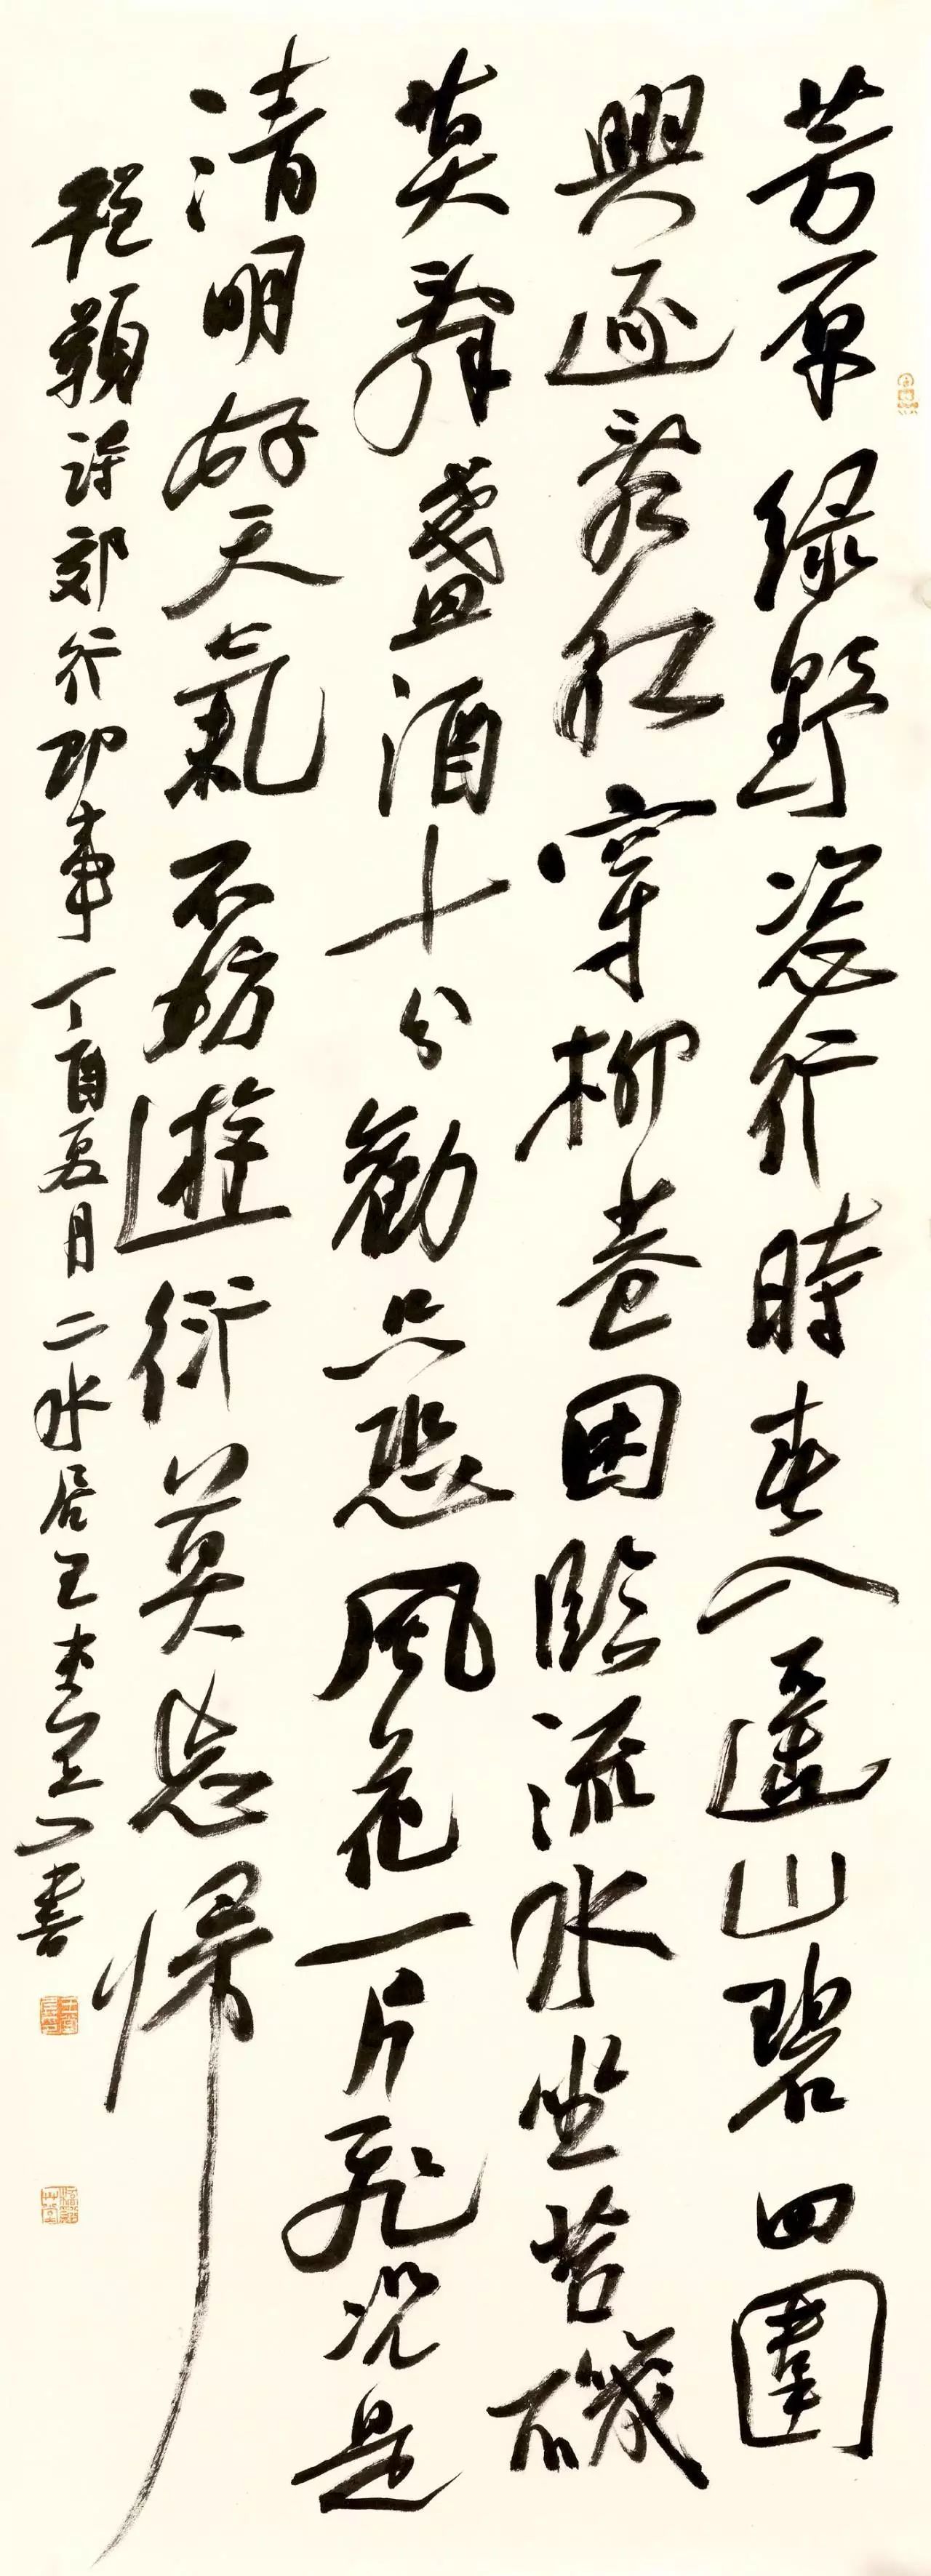 芳原緑野恣行時春入遥山碧四圍
興逐亂紅穿柳巷困臨流水坐苔磯
莫辭盞酒十分勸只恐風花一片飛況是
清明好天氣不妨遊衍莫忘歸
程顥詩郊行即事丁酉夏月二水居王書